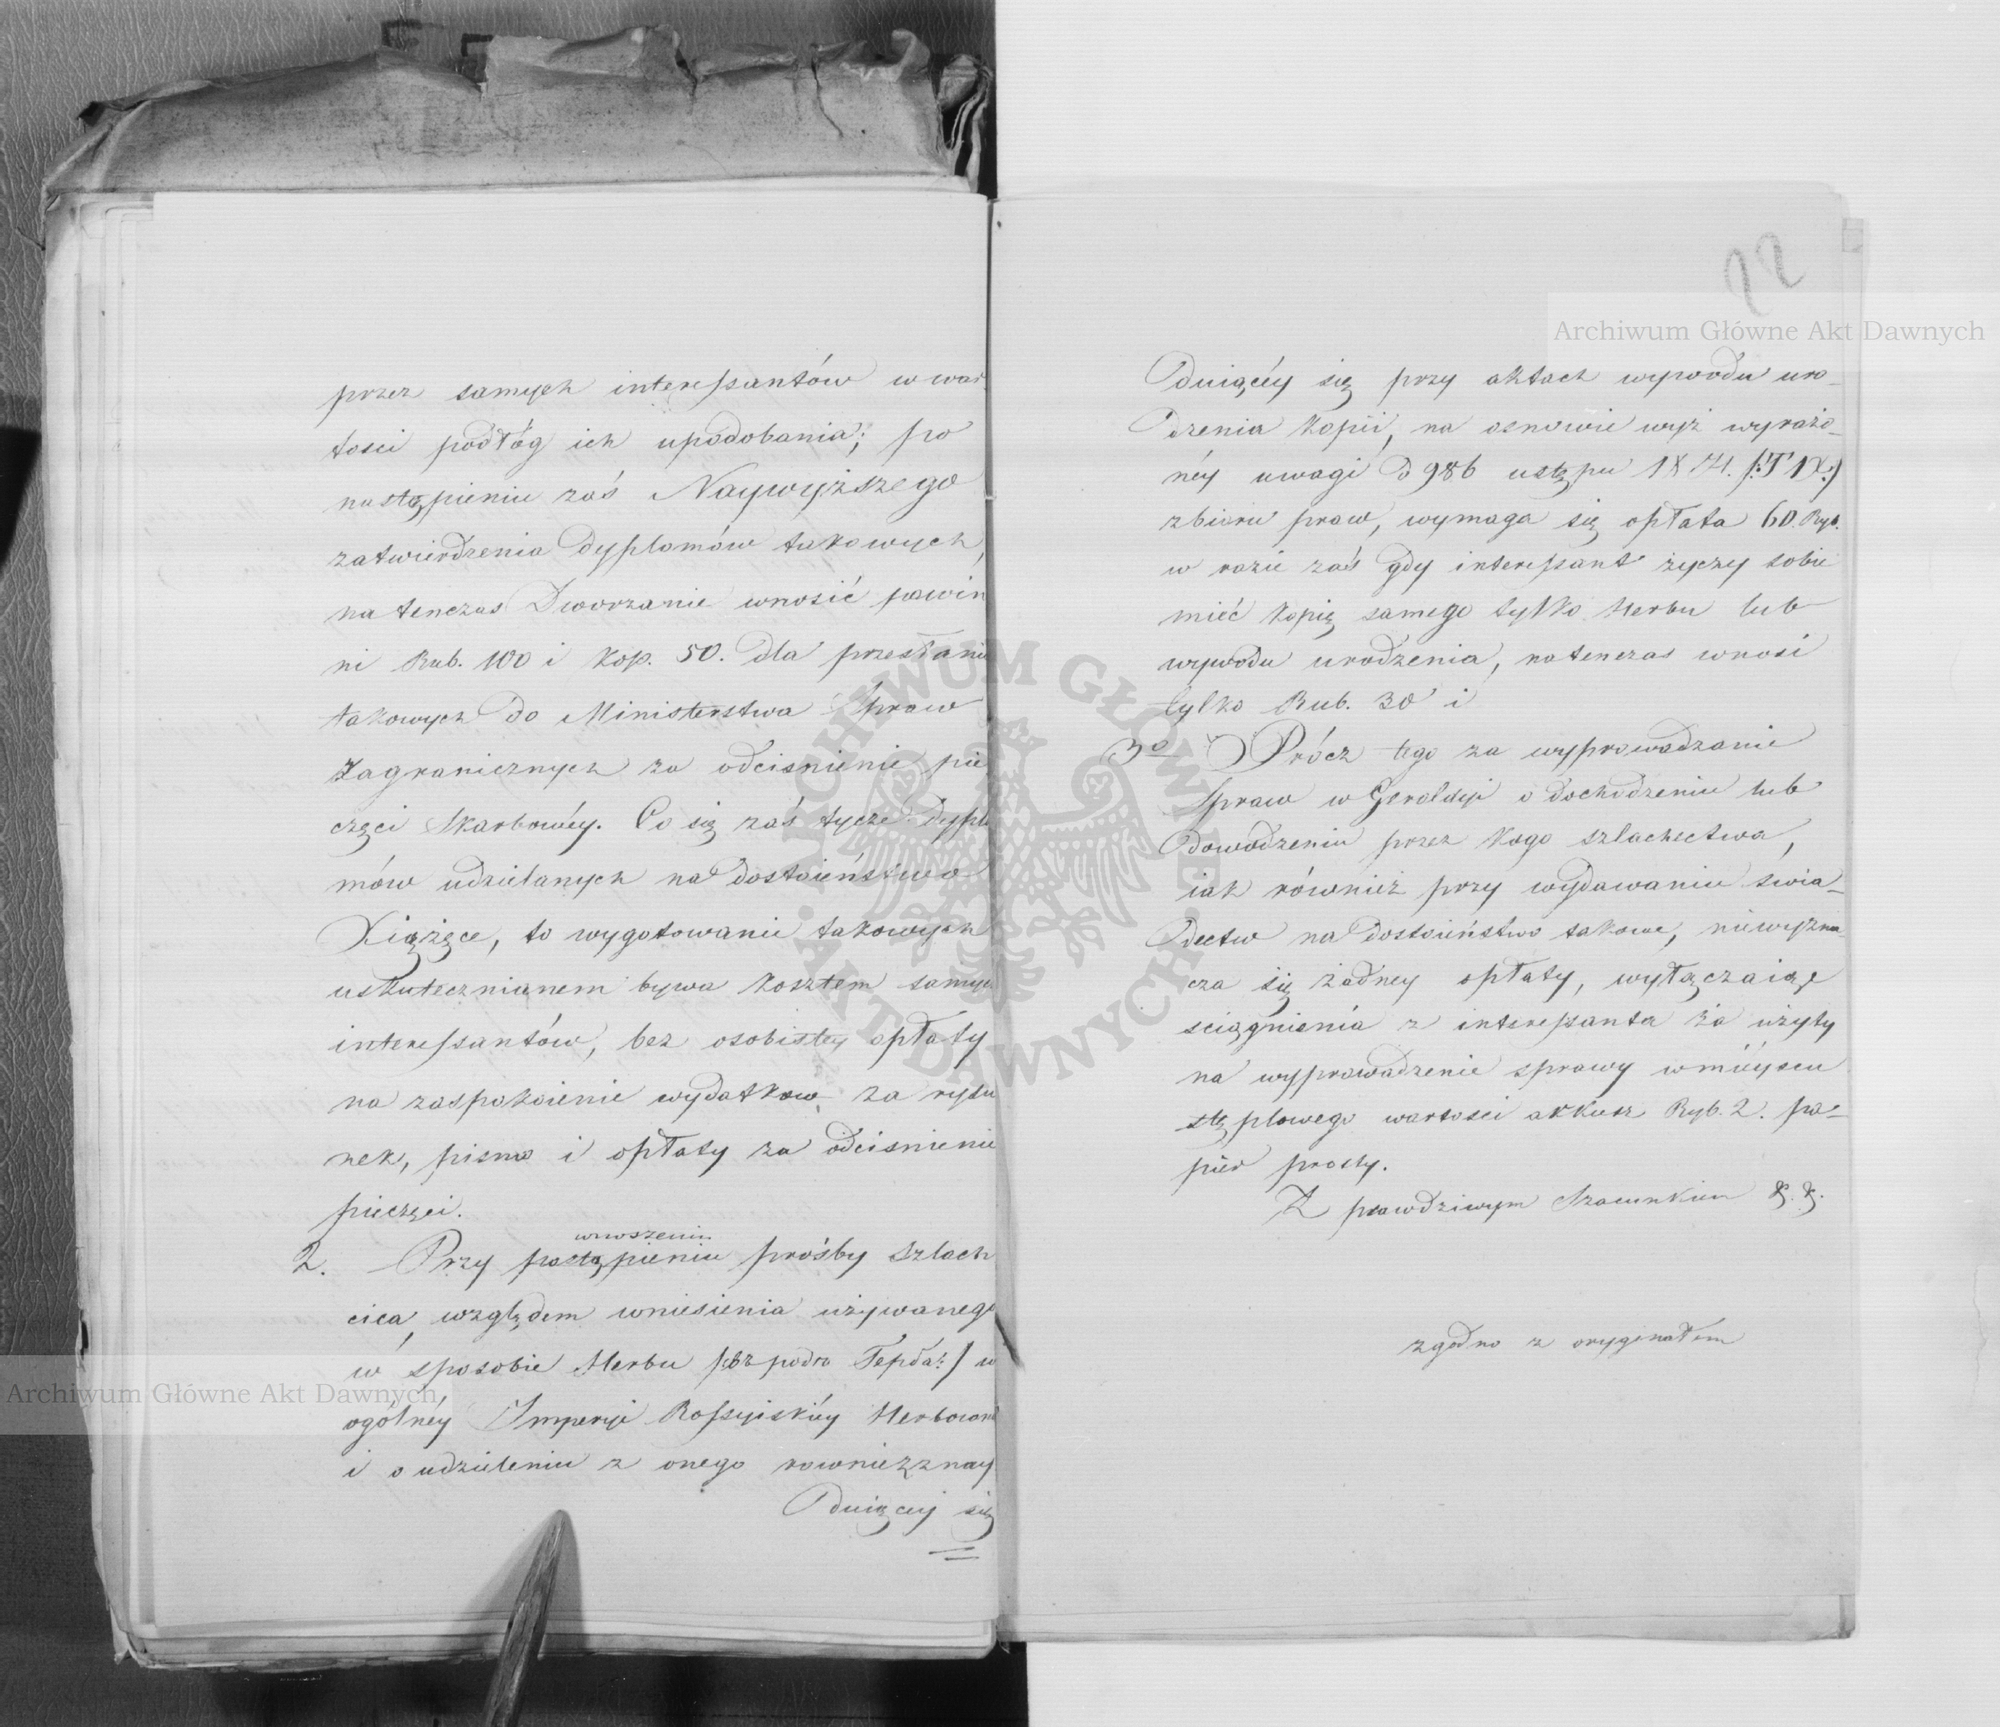 przez samych interessantów w war
tości podłóg ich upodobania; po
nastąpieniu zaś Naywyższego
zatwierdzenia dyplomów takowych,
natenczas Dworzanie wnosić powin
ni Rub. 100 i kop. 50. dla przesłania
takowych do Ministerstwa Spraw
Zagranicznych za odcisnienie pie
częci Skarbowéy. Co się zaś tycze dyplo
mów udzielanych na dostoieństwo
Xiążęce, to wygotowanie takowych
uskutecznianem bywa kosztem samych
interessantów, bez osobistey opłaty
na zaspokoienie wydatkow za rysu
nek, pismo i opłaty za odcisnienie
pieczęci.
wnoszeniu
2. Przy postąpieniu prośby szlach
cica, względem wniesienia używanego
w sposobie Herbu w
ogólnéy Imperyi Rossyiskiéy Herbown
i o udzieleniu z onego rownież znay
duiącej się
Archiwum Główne Akt Dawnych
22
Archiwum Główne Akt Dawnych
duiącéy się przy aktach wywodu uro-
dzenia kopii, na osnowie wyż wyrażo-
néy uwagi do 986 ustępu 1841. /:T IX:/
zbioru praw, wymaga się opłata 60. Ryb.
w razie zaś gdy interessant życzy sobie
mieć kopię samego tylko Herbu lub
wywodu urodzenia, natenczas wnosi
tylko Rub. 30 i
3o Prócz tego za wyprowadzanie
spraw w Geroldyi o dochodzeniu lub
dowodzeniu przez kogo szlachectwa,
iak również przy wydawaniu świa-
dectw na dostoieństwo takowe, niewyzna-
cza się żadney opłaty, wyłączaiąc
sciągnienia z interessanta za użyty
na wyprowadzenie sprawy w mieyscu
stęplowego wartości arkusz Ryb. 2. pa-
pier prosty.
Z prawdziwym Szacunkiem &. &.
zgodno z oryginałem
ARCHIWUM GŁÓWNE AKT DAWNYCH